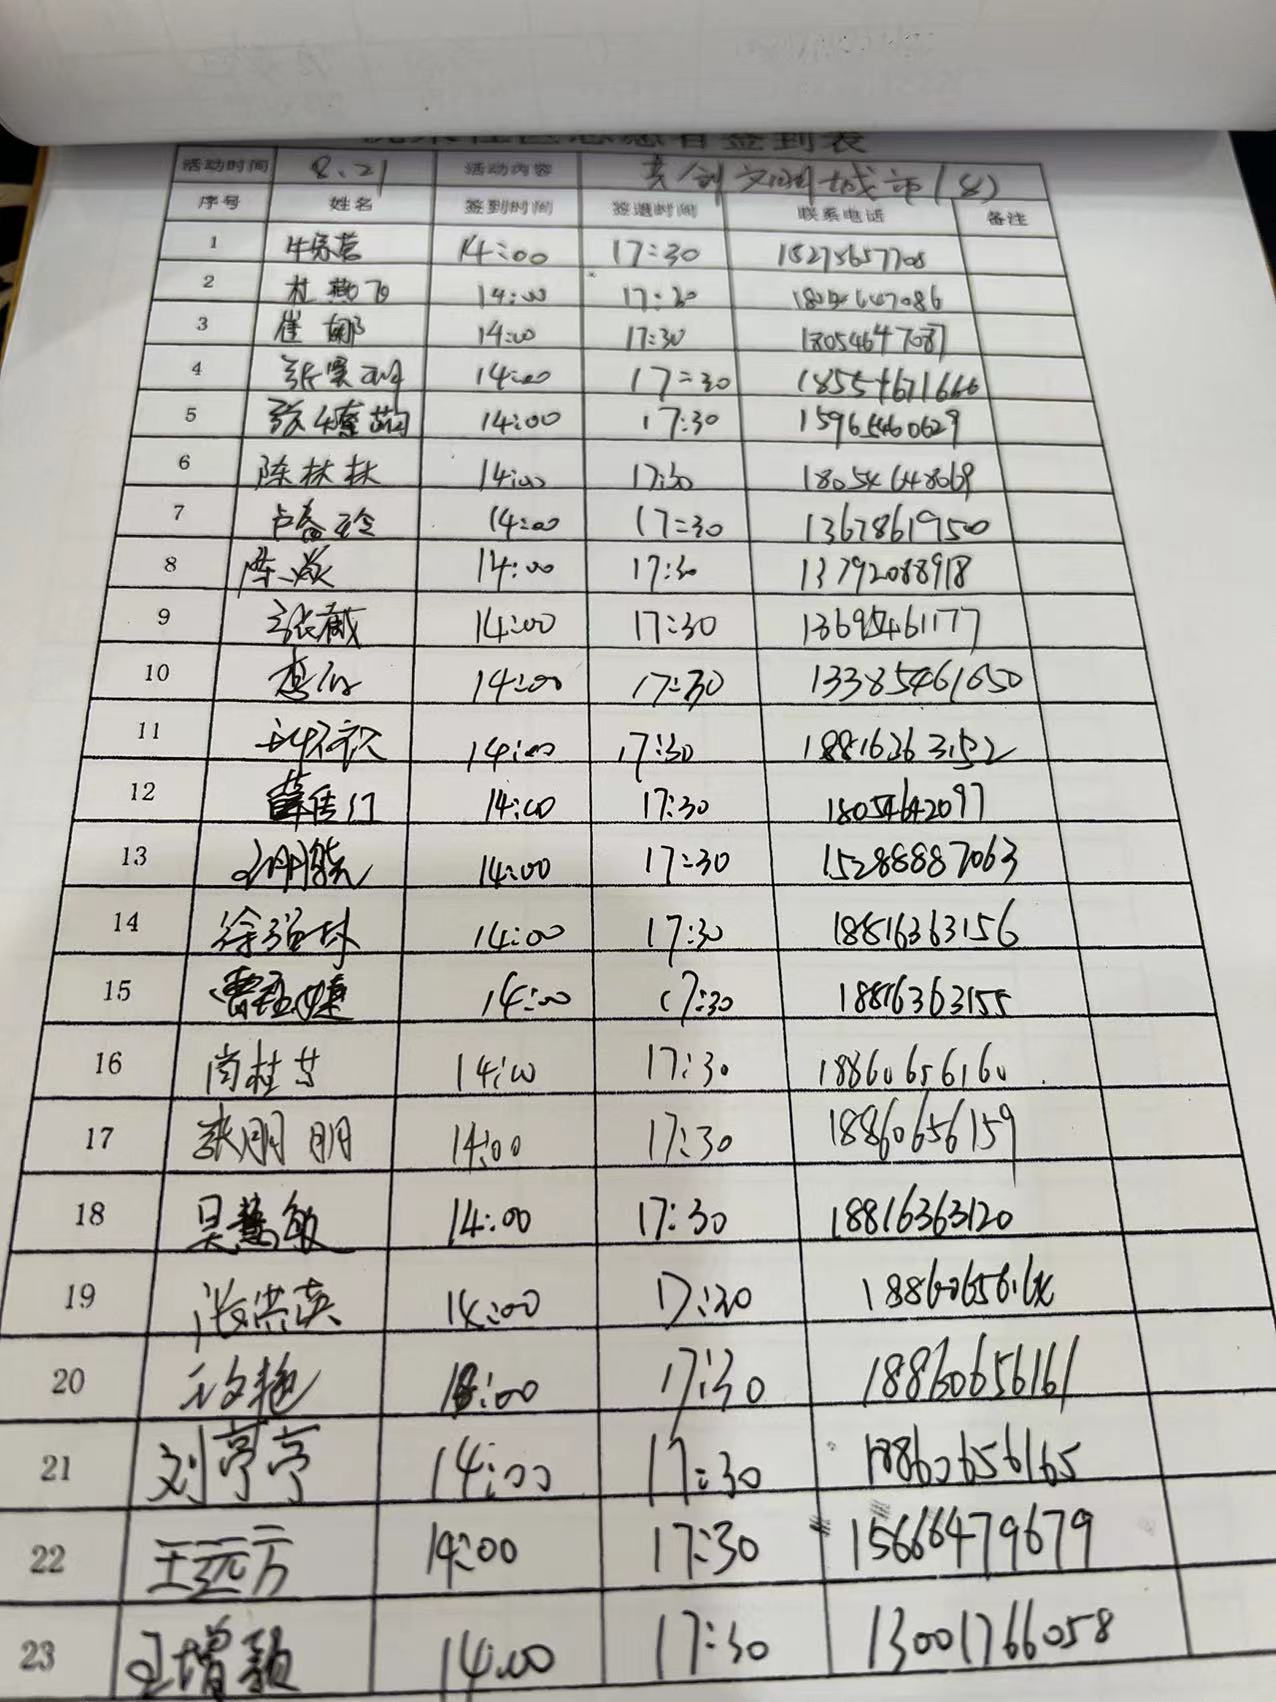 社区志愿者签到表
活动时间 8.21 活动内容 创文明城市(8)
序号 姓名 签到时间 签退时间 联系电话 备注
1 14:00 17:30 15275657708
2 杜燕 14:00 17:30
3 崔娜 14:00 17:30 18054647087
4 张 14:00 17:30 18554671666
5 张 14:00 17:30 15965460629
6 陈扶扶 14:00 17:30 18054648069
7 卢春玲 14:00 17:30 13678619500
8 陈 14:00 17:30 13792088918
9 张薇 14:00 17:30 13695461177
10 14:00 17:30 133385461650
11 14:00 17:30 18816363152
12 薛 14:00 17:30 18054642097
13 14:00 17:30 15288887063
14 徐 14:00 17:30 18816363156
15 曹 14:00 17:30 18816363155
16 尚桂芳 14:00 17:30 18860656160
17 张朋朋 14:00 17:30 18860656159
18 吴慧敏 14:00 17:30 18816363120
19 张洪英 14:00 17:30
20 王文艳 :00 17:30 18860656161
21 刘亭亭 14:00 17:30 18860656165
22 王远方 14:00 17:30 15666479679
23 王增颖 14:00 17:30 13001766058